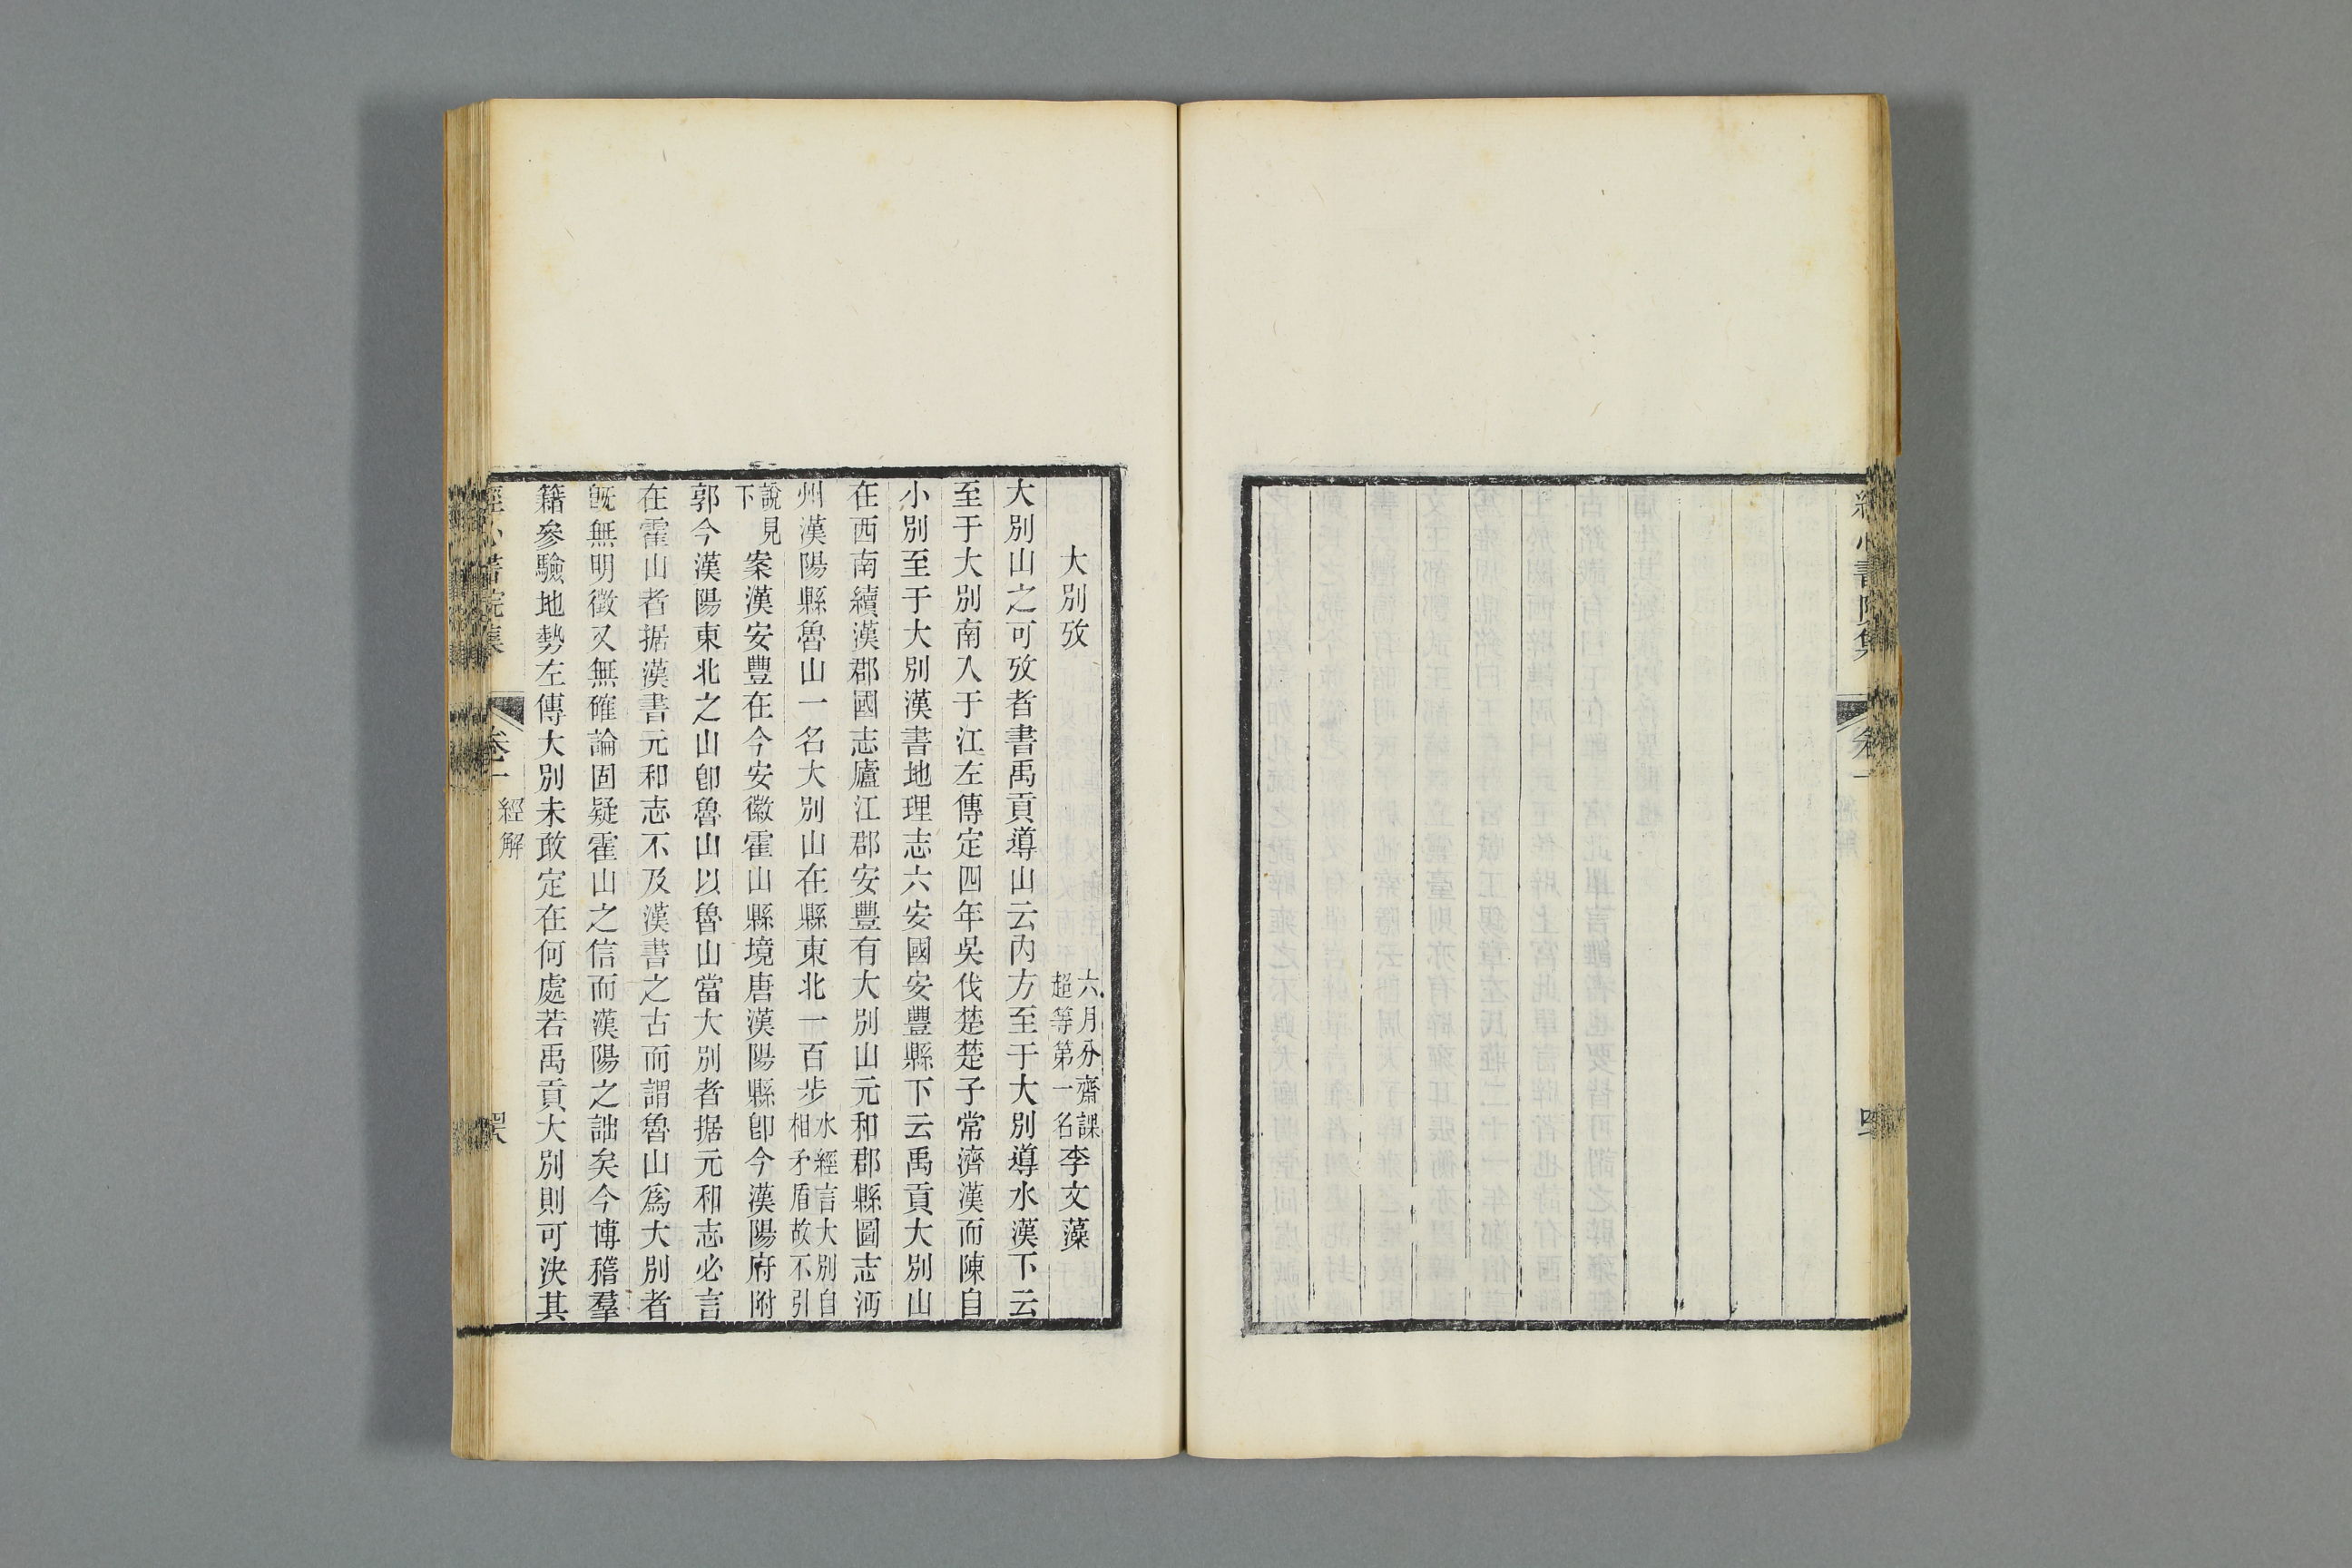 經心書院集
卷一
大別攷
六月分齋課
超等第一名
李文藻
大別山之可攷者書禹貢導山云內方至于大別導水漢下云
至于大別南入于江左傳定四年吳伐楚楚子常濟漢而陳自
小別至于大別漢書地理志六安國安豐縣下云禹貢大別山
在西南續漢郡國志廬江郡安豐有大別山元和郡縣圖志沔
州漢陽縣魯山一名大別山在縣東北一百步
水經言大別自
相矛盾故不引
說見
下
案漢安豐在今安徽霍山縣境唐漢陽縣卽今漢陽府附
郭今漢陽東北之山卽魯山以魯山當大別者据元和志必言
在霍山者据漢書元和志不及漢書之古而謂魯山爲大別者
旣無明徵又無確論固疑霍山之信而漢陽之詘矣今博稽羣
籍參驗地勢左傳大別未敢定在何處若禹貢大別則可決其
經心書院集
卷一
經解